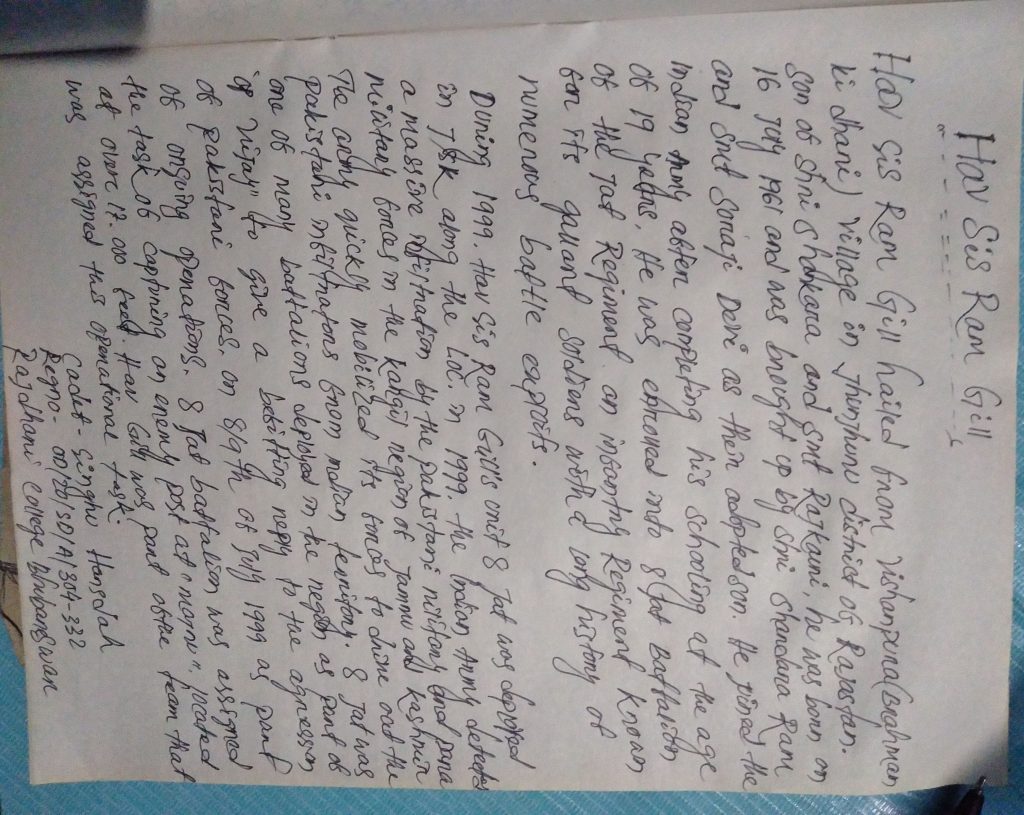 Hav Sis Ram Gill
Hav Sis Ram Gill hailed from Vishanpura (Brahman
ki dhani) village in Jhunjhunu district of Rajastan.
Son of Shri Shokara and smt Rajkauri, he was born on
16 July 1961 and was brought up by Shri Shandana Ram
and Smt Sonaji Devi as their adopted son. He joined the
Indian Army after completing his schooling at the age
of 19 years. He was enrolled into 8 Jat Battalion
of the Jat Regiment. an infantry Regiment known
for its galland soldiers with a long history of
numerous battle exploits.
During 1999. Hav Sis Ram Gill's unit 8 Jat was deployed
in J&K along the LOC. in 1999. the Indian Army detects
a massive infiltration by the pakistani military and para
military forces in the Kargil region of Jammu and Kashmir
The army quickly mobilized its forces to drive out the
pakistani infiltrators from Indian territory. 8 Jat was
one of many battalions deployed in the region as part of
op "Vijay" to give a befitting reply to the agression
of pakistani forces. on 8/9th of July 1999 as part
of ongoing operations. 8 Jat battalion was assigned
the task of capturing an enemy post at located
at over 17.000 feet. Hav Gill was part of the team that
was assigned this operational task.
Cadet - Singhu Hansdah
Regno -
Rajdhani College Bhubaneswar